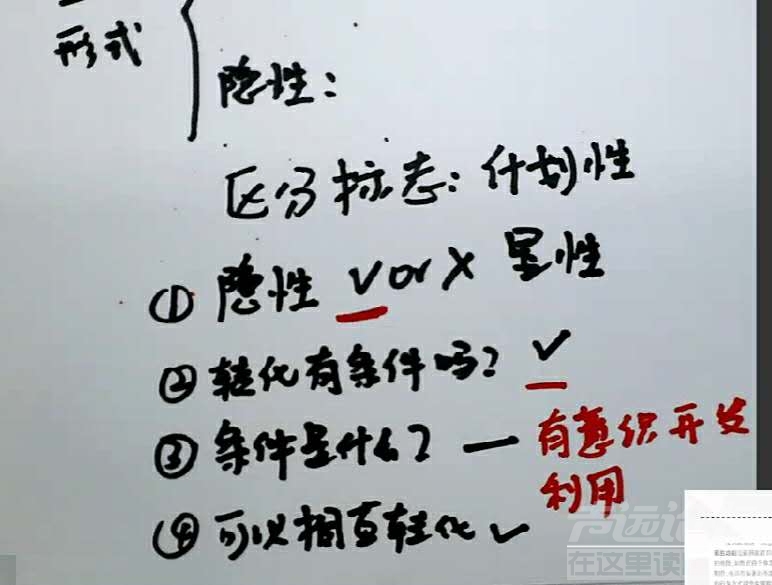 形式
隐性:
区分标志:计划性
① 隐性 √or× 显性
② 转化有条件吗? √
③ 条件是什么? — 有意识开发
利用
④ 可以相互转化 √
在这里读